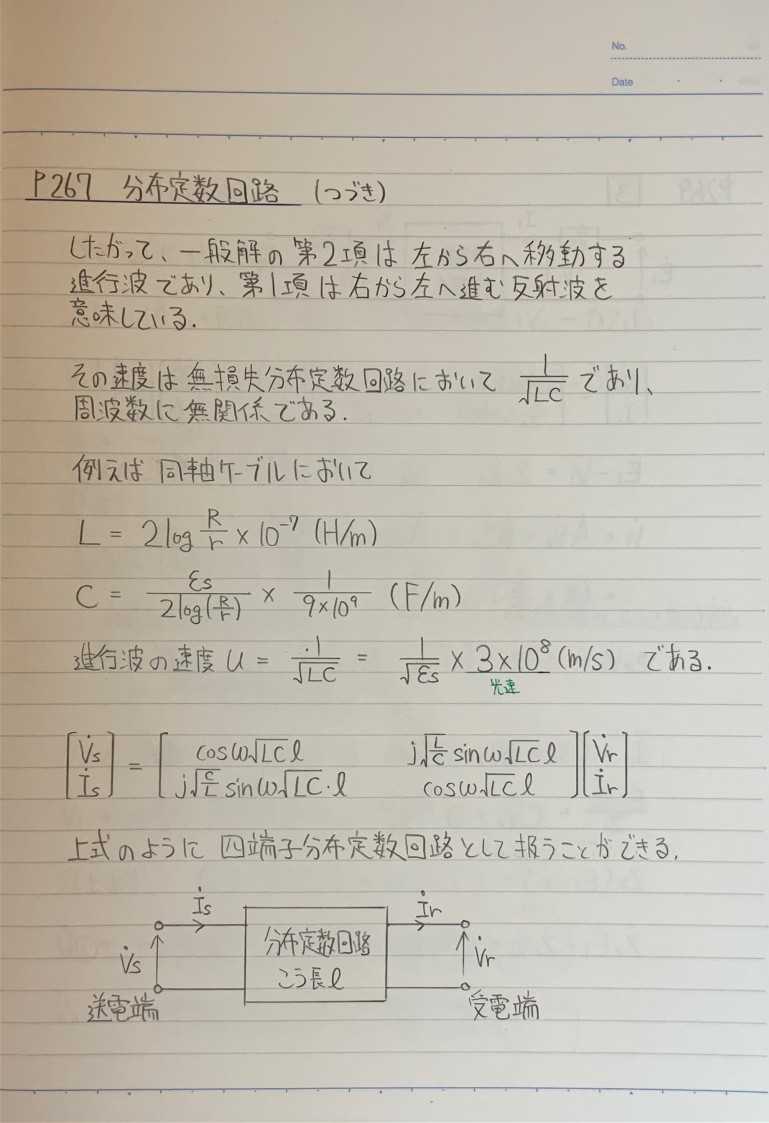 No.
Date
P267 分布定数回路 (つづき)
したがって、一般解の第2項は左から右へ移動する
進行波であり、第1項は右から左へ進む反射波を
意味している.
その速度は無損失分布定数回路において 1/√LC であり、
周波数に無関係である.
例えば同軸ケーブルにおいて
L = 2log R/r × 10⁻⁷ (H/m)
C = εs/2log(R/r) × 1/9×10⁹ (F/m)
進行波の速度 u = 1/√LC = 1/√εs × 3×10⁸ (m/s) である.
光速
[V̇s İs] = [cosω√LC l  j√L/C sinω√LC l
j√C/L sinω√LC・l  cosω√LC l] [V̇r İr]
上式のように 四端子分布定数回路として扱うことができる.
İs İr
V̇s 分布定数回路 V̇r
こう長 l
送電端 受電端